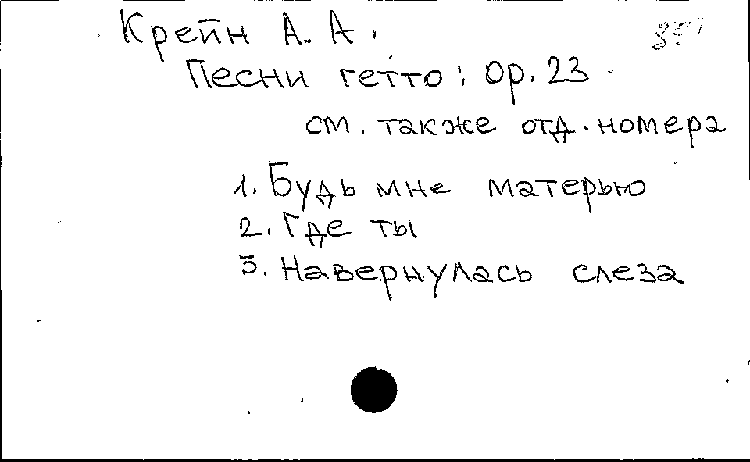 Крейн А. А.
Песни гетто; ор. 23
см. также отд. номера
1. Будь мне матерью
2. Где ты
3. Навернулась слеза